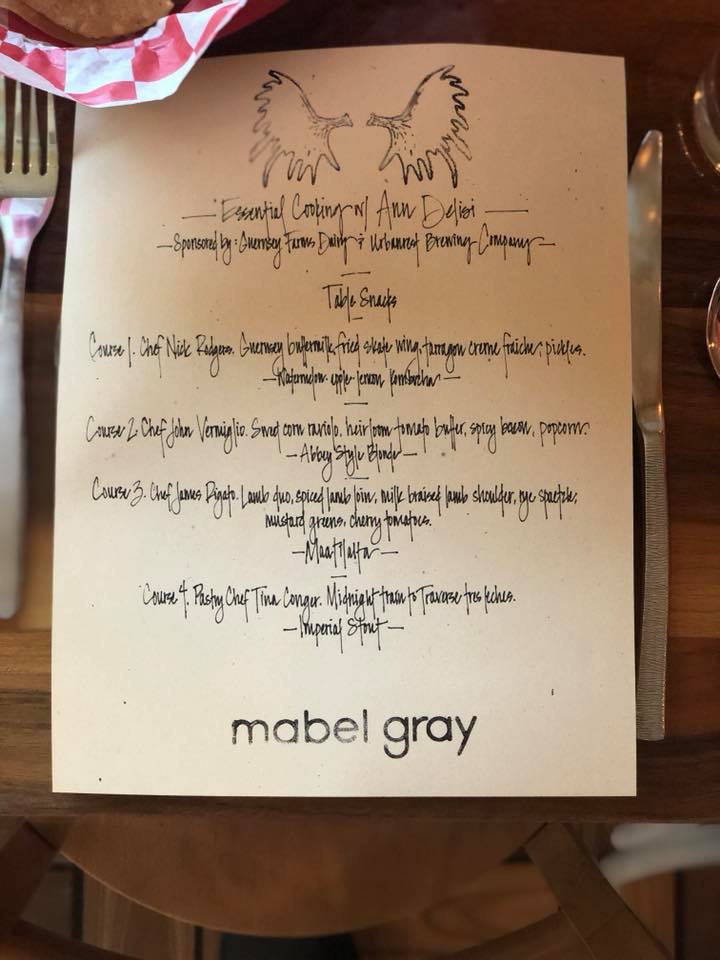 Essential Cooking w/ Ann Delisi
Sponsored by: Guernsey Farms Dairy & Urbanrest Brewing Company
Table Snacks
Course 1. Chef Nick Rodgers. Guernsey buttermilk, fried skate wing, tarragon creme fraiche, pickles.
Watermelon-apple-lemon Kombucha
Course 2. Chef John Vermiglio. Sweet corn raviolo, heirloom tomato butter, spicy bacon, popcorn.
Abbey Style Blonde
Course 3. Chef James Rigato. Lamb duo, spiced lamb loin, milk braised lamb shoulder, rye spaetzle,
mustard greens, cherry tomatoes.
Course 4. Pastry Chef Tina Conger. Midnight train to Traverse tres leches.
Imperial Stout
mabel gray